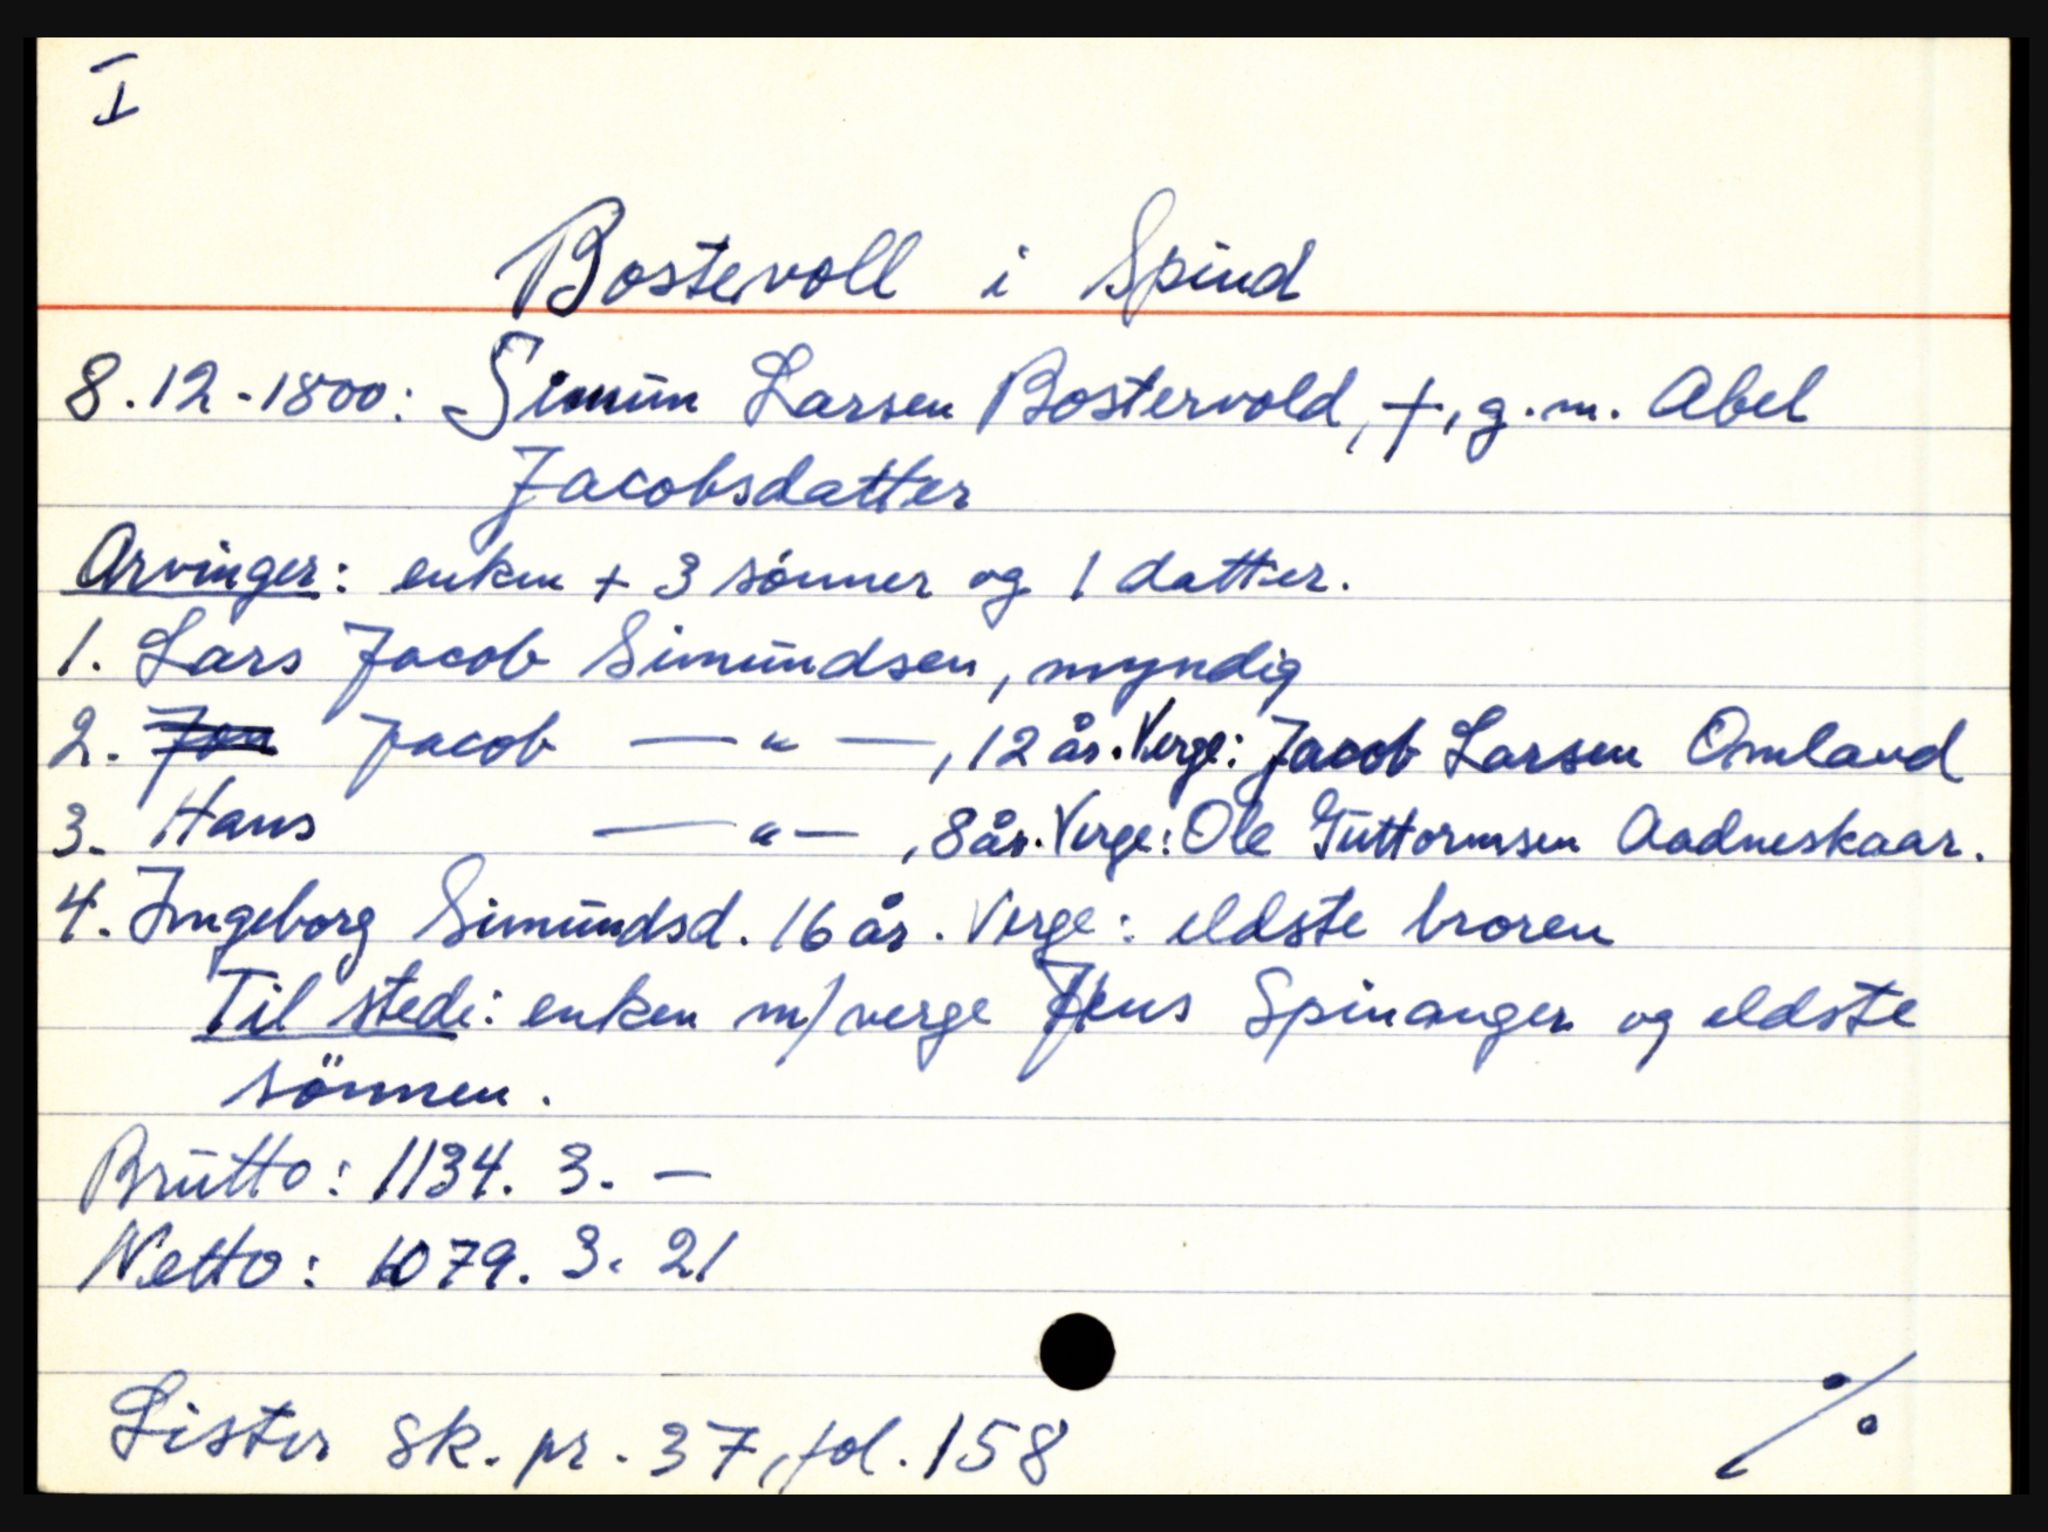 I
Bostevoll i Spind
8.12.1800: Simun Larsen Bostervold, †, g.m. Abel
Jacobsdatter
Arvinger: enken + 3 sónner og 1 datter.
1. Lars Jacob Simundsen, myndig
2. Jon Jacob — " —, 12 år. Verge: Jacob Larsen Omland
3. Hans — " — , 8 år. Verge: Ole Guttormsen Aadneskaar.
4. Ingeborg Simundsd. 16 år. Verge: eldste broren
Til stede: enken m/verge Jens Spinanger og eldste
sönnen.
Brutto: 1134. 3. —
Netto: 1079. 3. 21
Lister sk. pr. 37, fol. 158
./.